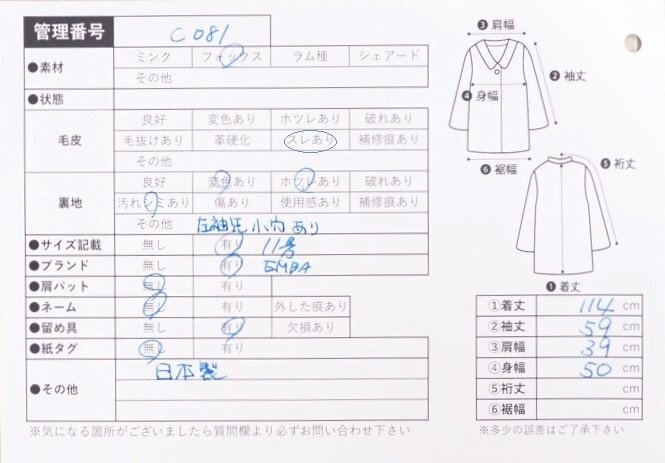 管理番号 C081
●素材 ミンク フォックス ラム種 シェアード
その他
●状態
毛皮 良好 変色あり ホツレあり 破れあり
毛抜けあり 革硬化 スレあり 補修痕あり
その他
裏地 良好 変色あり ホツレあり 破れあり
汚れシミあり 傷あり 使用感あり 補修痕あり
その他 左袖先 小穴あり
●サイズ記載 無し 有り 11号
●ブランド 無し 有り EMBA
●肩パット 無し 有り
●ネーム 無し 有り 外した痕あり
●留め具 無し 有り 欠損あり
●紙タグ 無し 有り
●その他 日本製
※気になる箇所がございましたら質問欄より必ずお問い合わせ下さい
❸肩幅
❷袖丈
❹身幅
❻裾幅
❺裄丈
❶着丈
①着丈 114 cm
②袖丈 59 cm
③肩幅 39 cm
④身幅 50 cm
⑤裄丈 cm
⑥裾幅 cm
※多少の誤差はご了承下さい